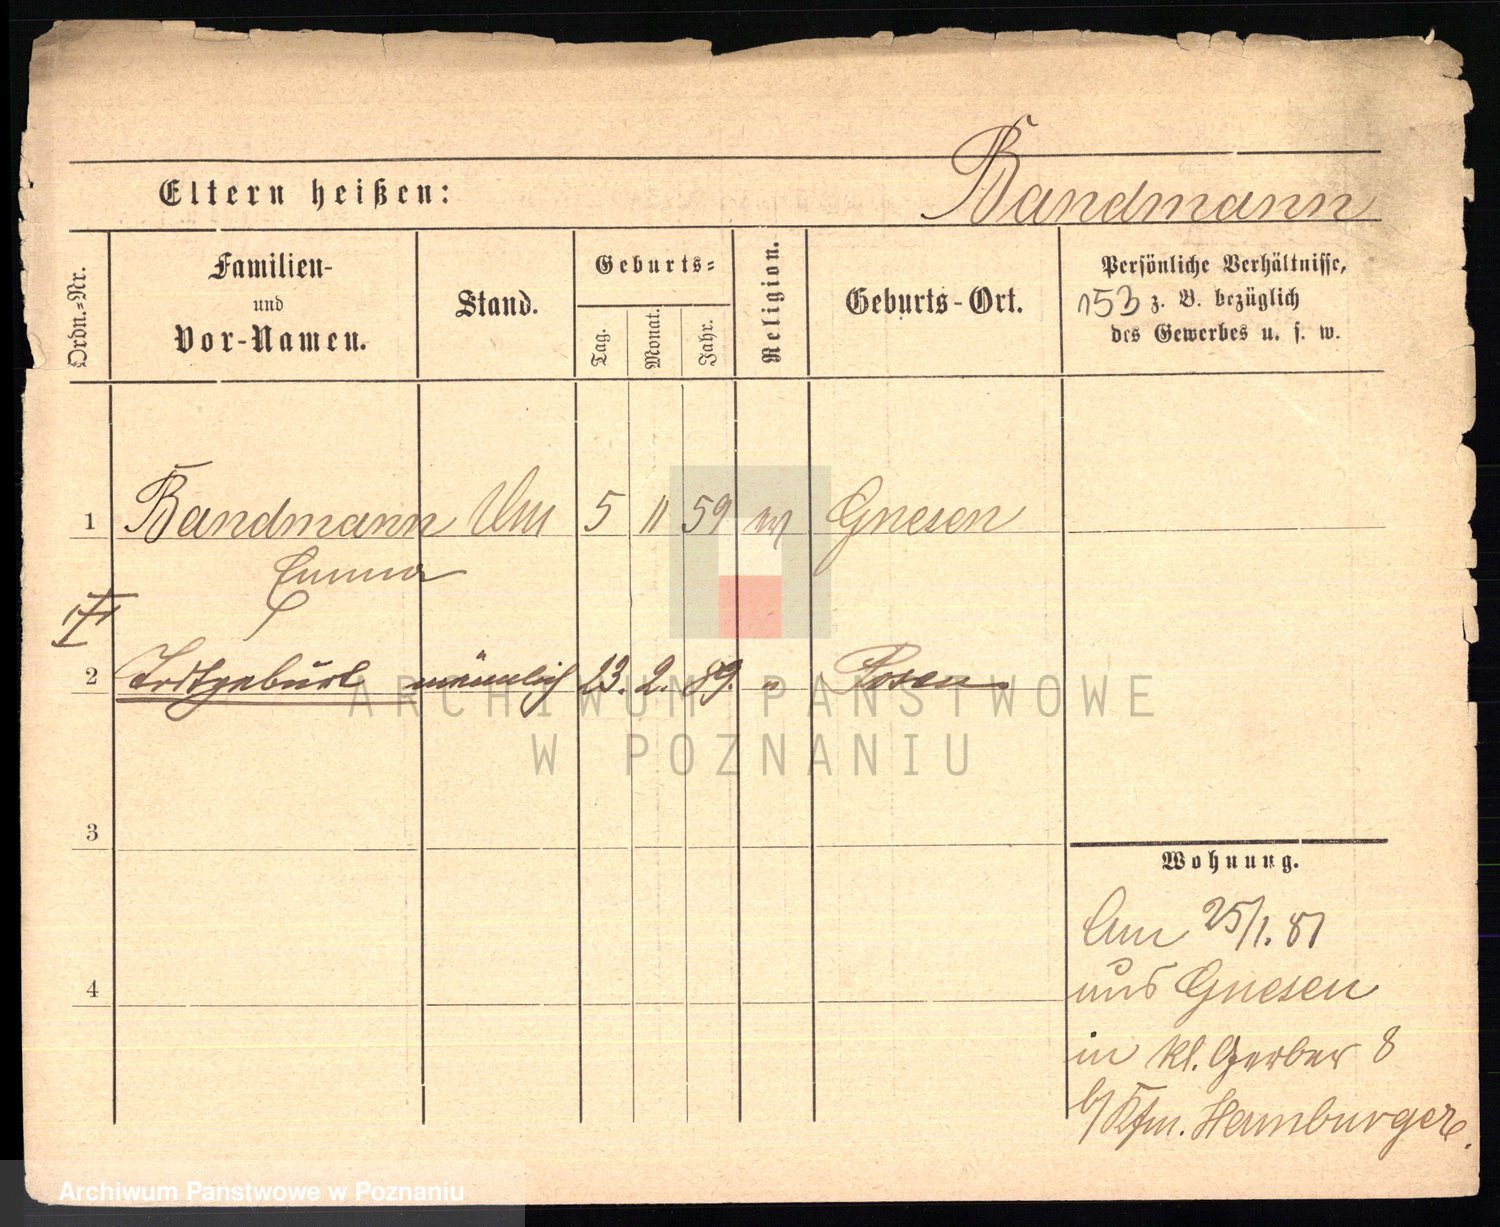 Bandmann
Eltern heißen:
Ordn.-Nr.
Familien-
und
Vor-Namen.
Stand.
Geburts-
Tag.
Monat.
Jahr.
Religion.
Geburts-Ort.
Persönliche Verhältnisse,
153 z. B. bezüglich
des Gewerbes u. s. w.
1 Bandmann 5 11 59 Gnesen
Emma
2 Todtgeburt männlich 23. 2. 89. " Posen
3
4
Wohnung.
Am 25/1. 81
aus Gnesen
in Kl. Gerber 8
b/ Kfm. Hamburger.
ARCHIWUM PAŃSTWOWE
W POZNANIU
Archiwum Państwowe w Poznaniu